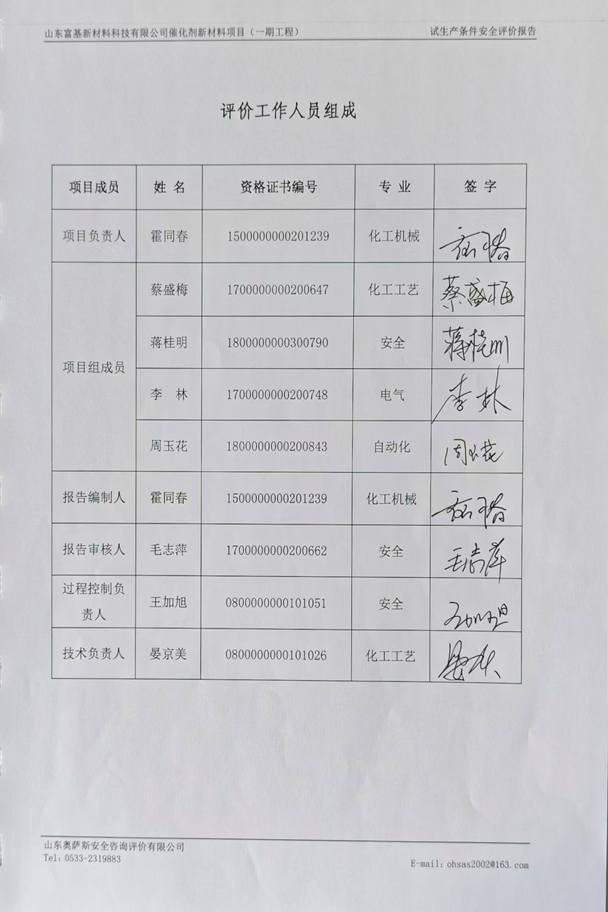 山东富基新材料科技有限公司催化剂新材料项目（一期工程） 试生产条件安全评价报告
评价工作人员组成
项目成员 姓 名 资格证书编号 专 业 签 字
项目负责人 霍同春 1500000000201239 化工机械
蔡盛梅 1700000000200647 化工工艺 蔡盛梅
蒋桂明 1800000000300790 安全 蒋桂明
项目组成员
李 林 1700000000200748 电气 李林
周玉花 1800000000200843 自动化 周玉花
报告编制人 霍同春 1500000000201239 化工机械
报告审核人 毛志萍 1700000000200662 安全 毛志萍
过程控制负
责人 王加旭 0800000000101051 安全
技术负责人 晏京美 0800000000101026 化工工艺
山东奥萨斯安全咨询评价有限公司
Tel: 0533-2319883 E-mail: ohsas2002@163.com